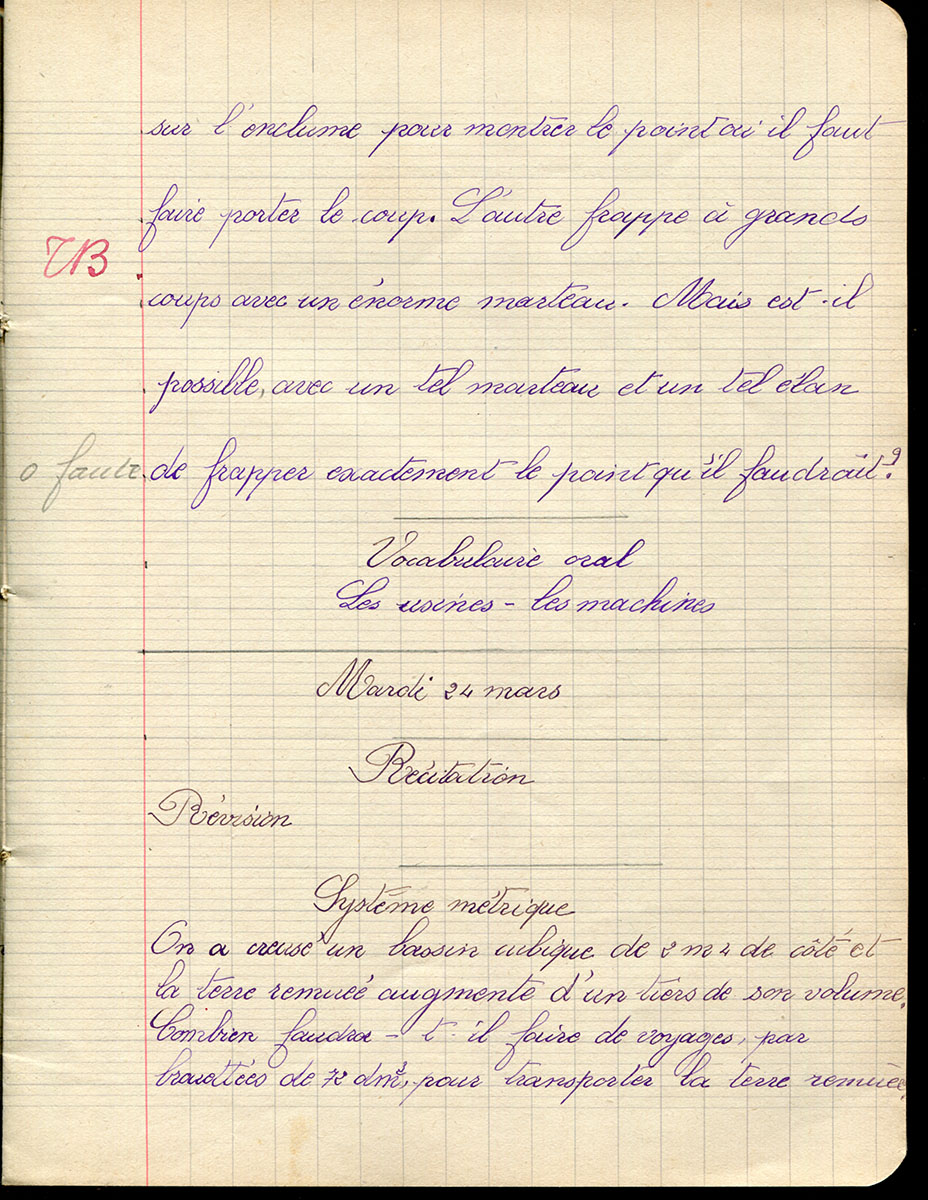 sur l'enclume pour montrer le point où il faut
faire porter le coup. L'autre frappe à grands
TB
coups avec un énorme marteau. Mais est-il
possible, avec un tel marteau et un tel élan
0 faute
de frapper exactement le point qu'il faudrait?
Vocabulaire oral
Les usines - les machines
Mardi 24 mars
Récitation
Révision
Système métrique
On a creusé un bassin cubique de 2 m 4 de côté et
la terre remuée augmente d'un tiers de son volume.
Combien faudra-t-il faire de voyages, par
brouettées de 72 dm³, pour transporter la terre remuée?